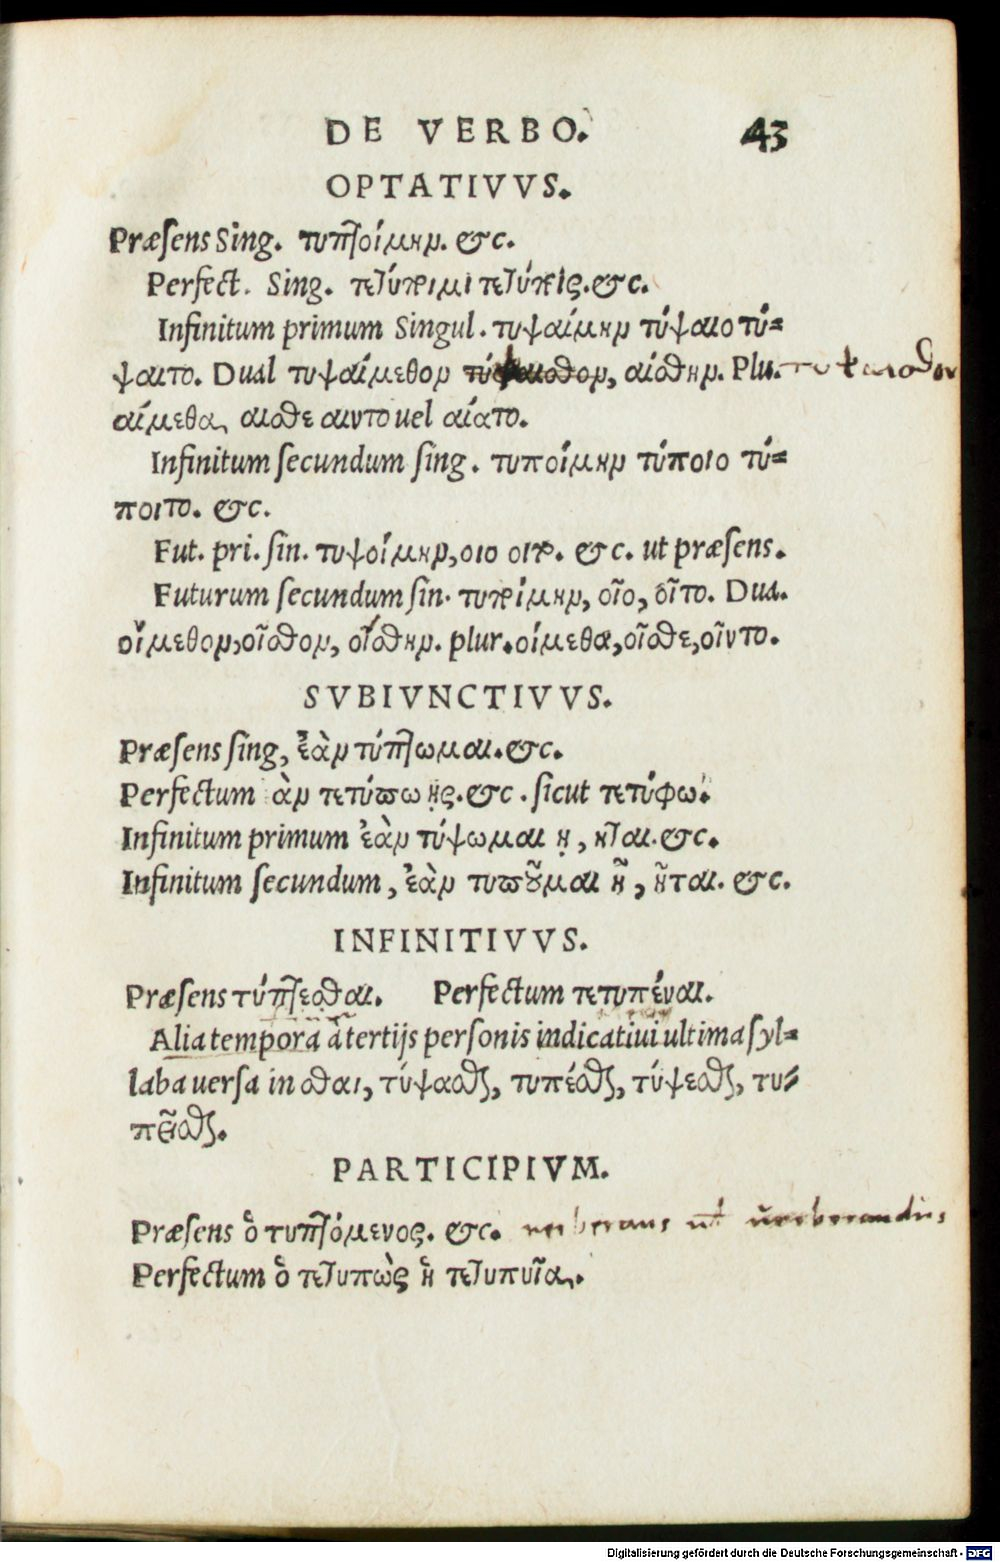 DE VERBO. 43
OPTATIVVS.
Præsens Sing. τυπτοίμην. &c.
Perfect. Sing. τετύποιμι τετύποις. &c.
Infinitum primum Singul. τυψαίμην τύψαιο τύ=
ψαιτο. Dual τυψαίμεθον αίσθην. Plu. τυψαισθον
αίμεθα, αισθε αιντο uel αίατο.
Infinitum secundum sing. τυποίμην τύποιο τύ=
ποιτο. &c.
Fut. pri. sin. τυψοίμην, οιο οιτο. &c. ut præsens.
Futurum secundum sin. τυποίμην, οῖο, οῖτο. Dua.
οίμεθον, οῖσθον, οίσθην. plur. οίμεθα, οῖσθε, οῖντο.
SVBIVNCTIVVS.
Præsens sing, ἐὰν τύπτωμαι. &c.
Perfectum ἀν τετύπω ῃς. &c. sicut τετύφω.
Infinitum primum ἐὰν τύψωμαι ῃ, ηται. &c.
Infinitum secundum, ἐὰν τυποῦμαι ῆ, ῆται. &c.
INFINITIVVS.
Præsens τύπτεσθαι. Perfectum τετυπέναι.
Alia tempora à tertijs personis indicatiui ultima syl=
laba uersa in σθαι, τύψασθαι, τυπέσθαι, τύψεσθαι, τυ=
πεῖσθαι.
PARTICIPIVM.
Præsens ὁ τυπτόμενος. &c. uerberans ut uerberandus
Perfectum ὁ τετυπὼς ἡ τετυπυῖα.
Digitalisierung gefördert durch die Deutsche Forschungsgemeinschaft - DFG